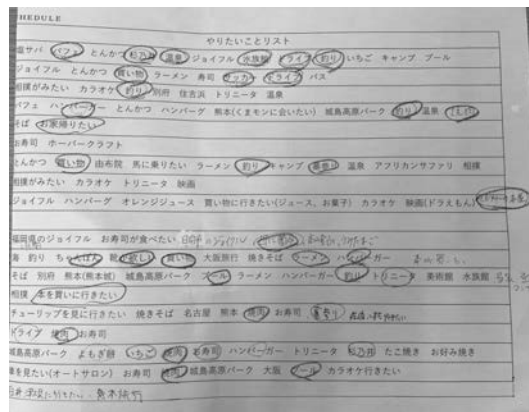 HEDULE
やりたいことリスト
塩サバ パフェ とんかつ 杉乃井 温泉 ジョイフル 水族館 ドライブ 釣り いちご キャンプ プール
ジョイフル とんかつ 買い物 ラーメン 寿司 サッカー ドライブ バス
相撲がみたい カラオケ 釣り 別府 住吉浜 トリニータ 温泉
パフェ ハンバーガー とんかつ ハンバーグ 熊本(くまモンに会いたい) 城島高原パーク 釣り 温泉
そば お家帰りたい
お寿司 ホーバークラフト
とんかつ 買い物 由布院 馬に乗りたい ラーメン 釣り キャンプ 墓参り 温泉 アフリカンサファリ 相撲
相撲がみたい カラオケ トリニータ 映画
ジョイフル ハンバーグ オレンジジュース 買い物に行きたい(ジュース、お菓子) カラオケ 映画(ドラえもん)
福岡県のジョイフル お寿司が食べたい
海 釣り ちゃんぽん 靴が欲しい 買い物 大阪旅行 焼きそば ラーメン ハンバーガー
そば 別府 熊本(熊本城) 城島高原パーク プール ラーメン ハンバーガー 釣り トリニータ 美術館 水族館
相撲 本を買いに行きたい
チューリップを見に行きたい 焼きそば 名古屋 熊本 焼肉 お寿司 墓参り
ドライブ 焼肉 お寿司
城島高原パーク よもぎ餅 いちご 焼肉 お寿司 ハンバーガー トリニータ 杉乃井 たこ焼き お好み焼き
車を見たい(オートサロン) お寿司 焼肉 城島高原パーク 大阪 プール カラオケ行きたい